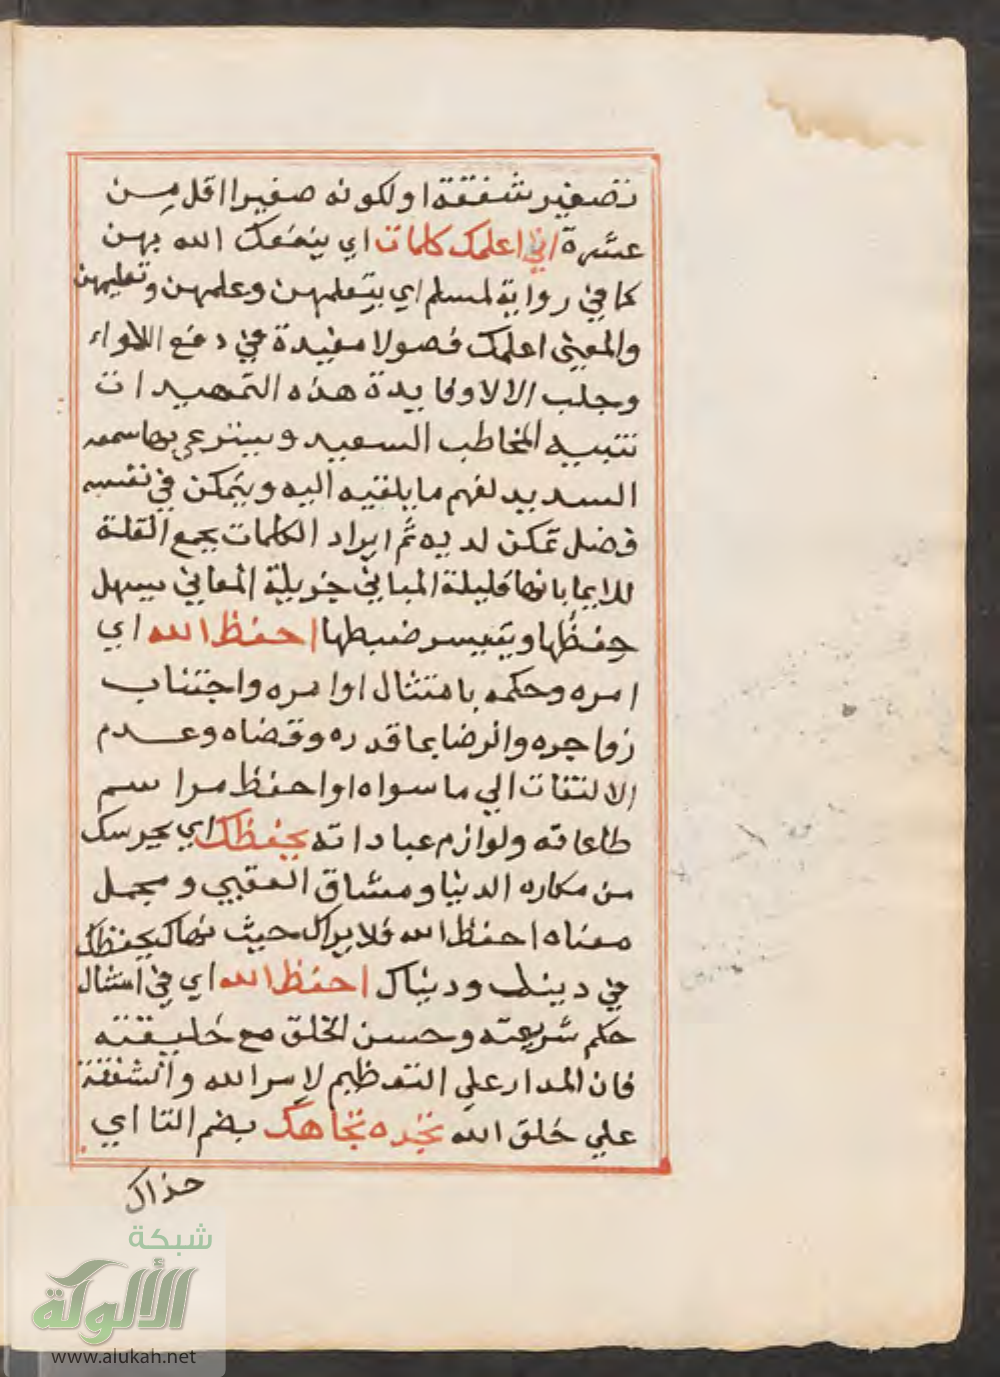 تصغير شفقة او لكونه صغيرا اقل من
عشرة اني اعلمك كلمات اي ينفعك الله بهن
كما في رواية لمسلم اي بتعلمهن وعلمهن وتعليمهن
والمعنى اعلمك فصولا مفيدة في دفع اللاواء
وجلب الالا وفايدة هذه التمهيدات
تنبيه المخاطب السعيد وسترعي بها سمعه
السديد لفهم ما يلقيه اليه ويتمكن في نفسه
فضل تمكن لديه ثم ايراد الكلمات بجمع القلة
للايما بانها قليلة المباني جزيلة المعاني يسهل
حفظها ويتيسر ضبطها احفظ الله اي
امره وحكمه بامتثال اوامره واجتناب
زواجره والرضا بما قدره وقضاه وعدم
الالتفات الي ما سواه او احفظ مراسم
طاعاته ولوازم عباداته يحفظك اي يحرسك
من مكاره الدنيا ومشاق العقبي ومجمل
معناه احفظ الله فلا يراك حيث نهاك يحفظك
في دينك ودنياك احفظ الله اي في امتثال
حكم شريعته وحسن الخلق مع خليقته
فان المدار علي التعظيم لامر الله والشفقة
علي خلق الله تجده تجاهك بضم التا اي
حذاك
شبكة
الألوكة
www.alukah.net